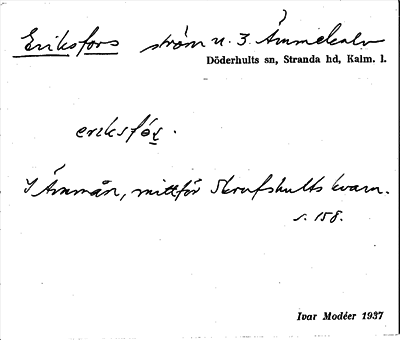 Eriksfors ström n. 3 Ämmekalv
Döderhults sn, Stranda hd, Kalm. l.
eriksfós.
I Ämmån, mittför Skrufshults kvarn.
s. 158.
Ivar Modéer 1937